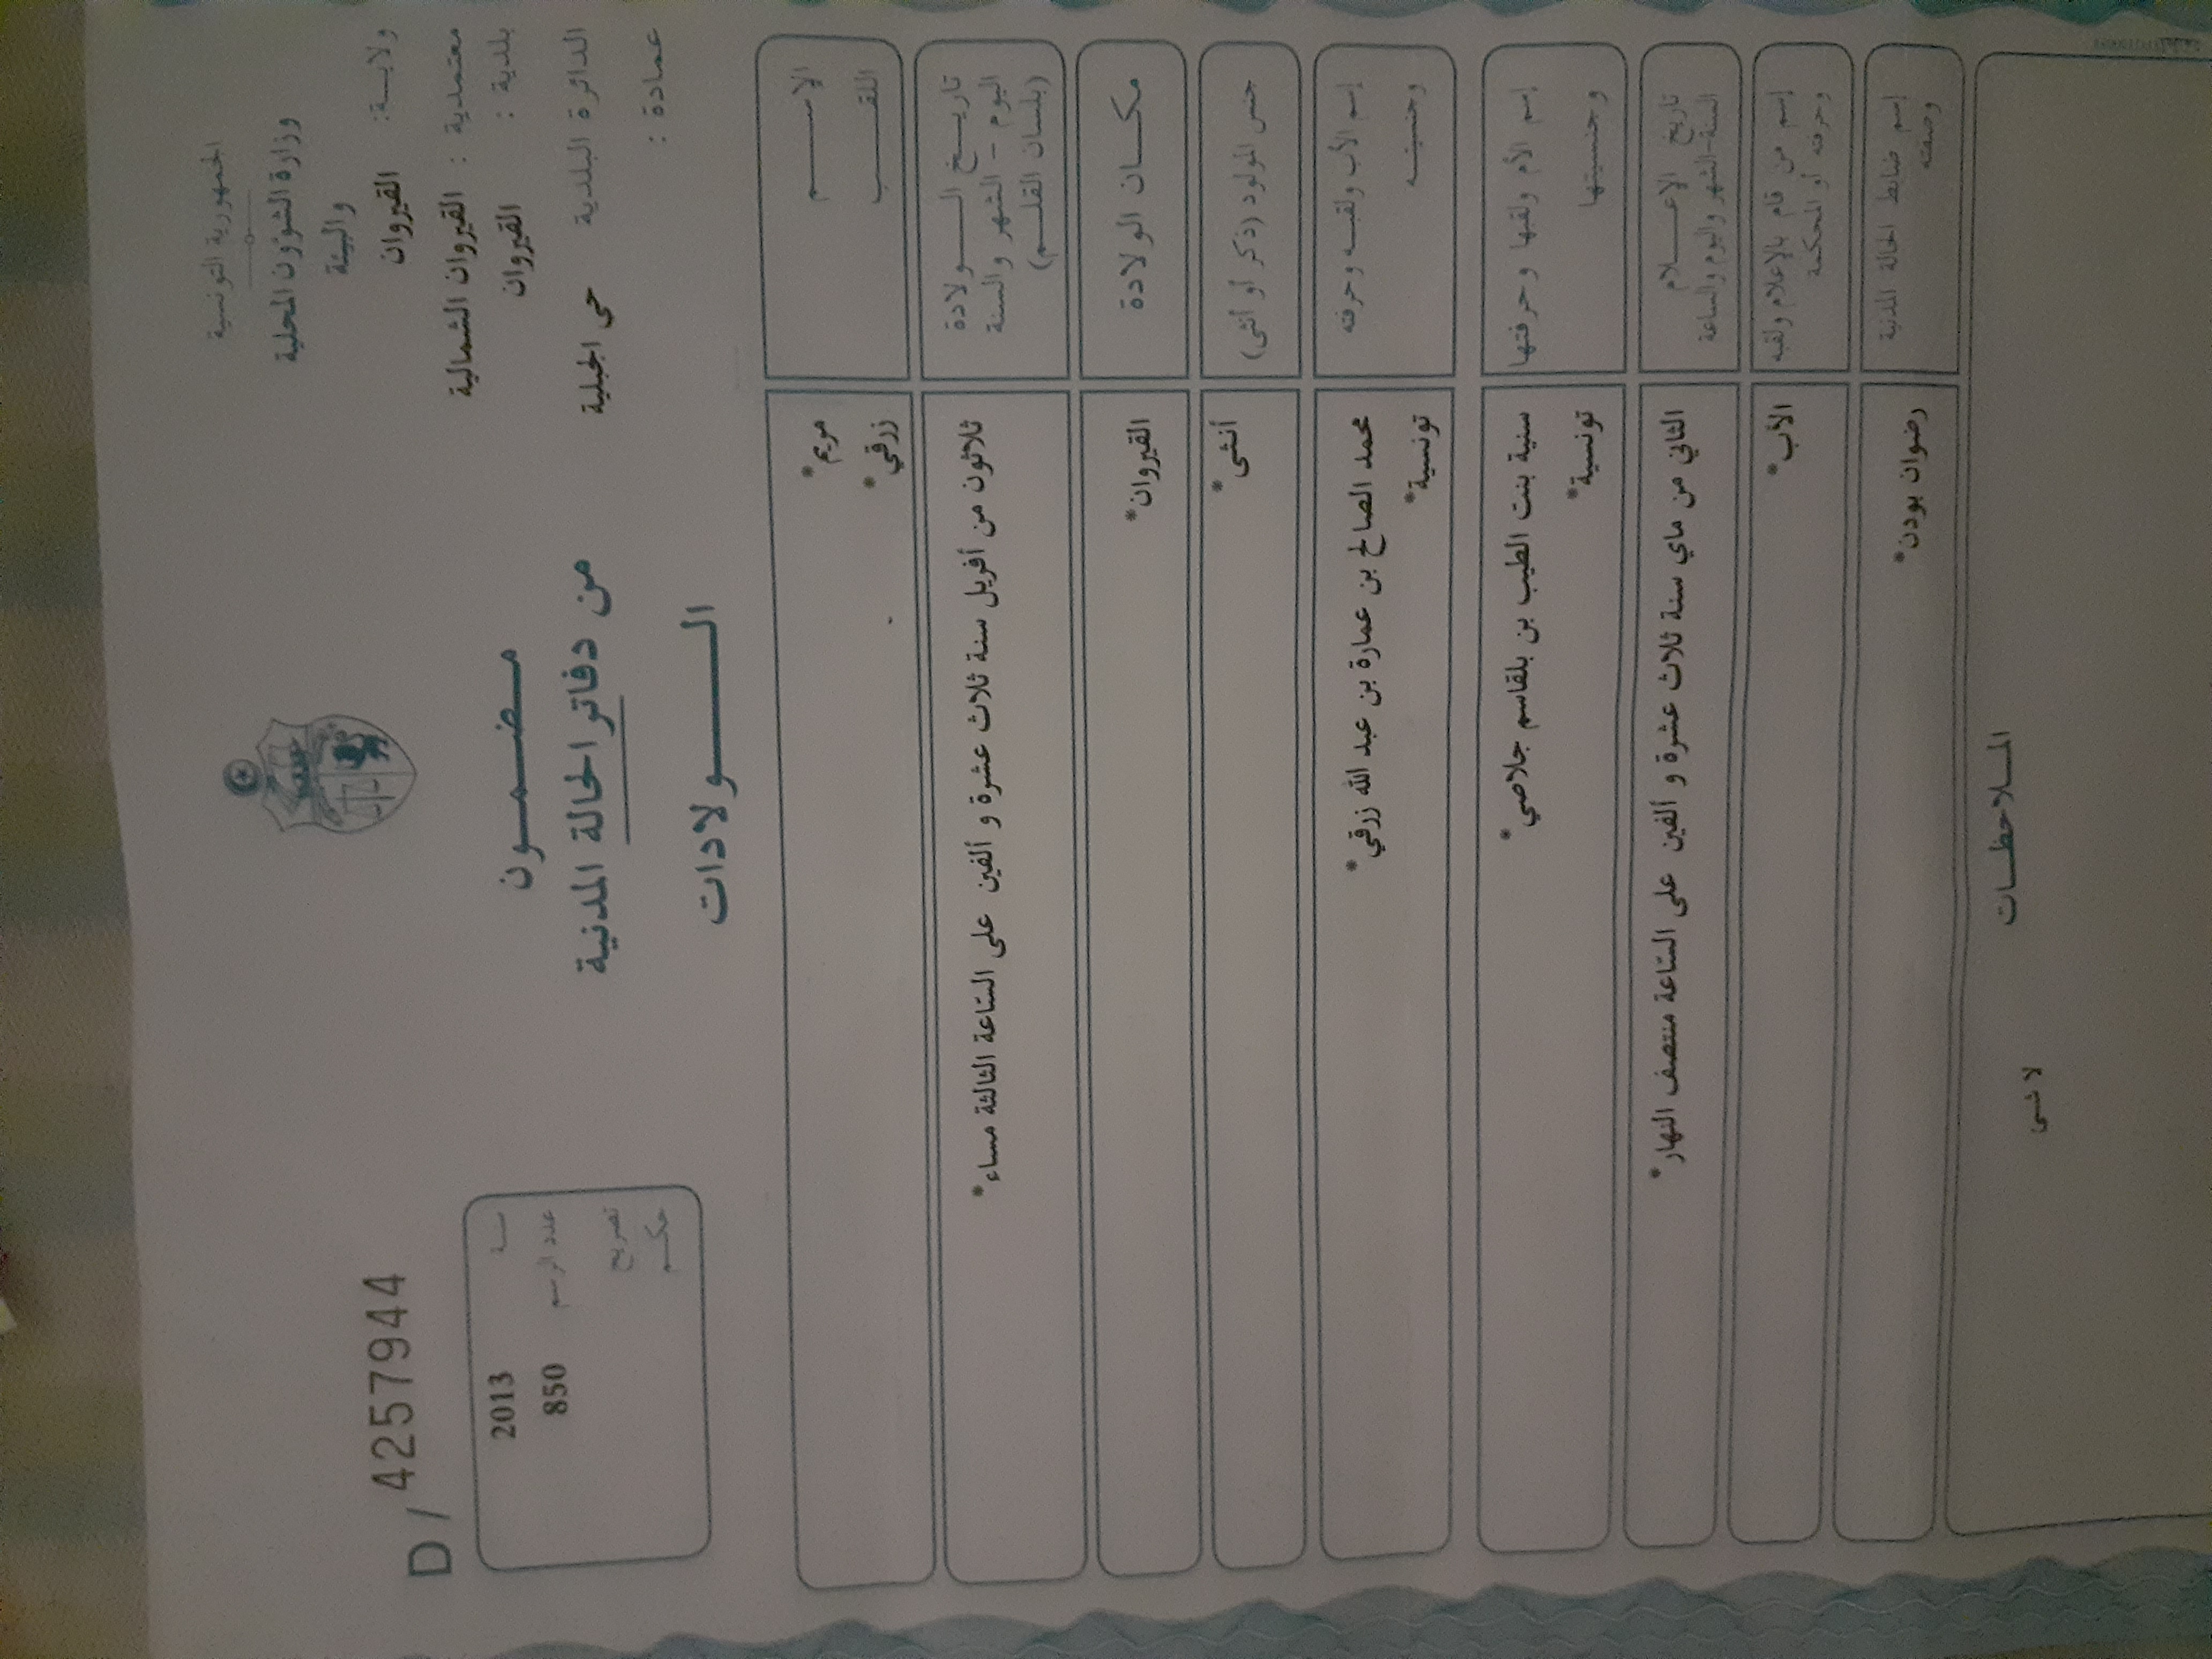 الجمهورية التونسية
وزارة الشؤون المحلية
والبيئة
ولايـة: القيروان
معتمدية : القيروان الشمالية
بلدية : القيروان
الدائرة البلدية حي الجبلية
عمادة :
D / 42579444
سنة 2013
عدد الرسم 850
تصريح
حكم
مضمـون
من دفاتر الحالة المدنية
الـولادات
الإسـم مريم*
اللقـب زرقي*
تاريـخ الـولادة
اليوم - الشهر والسنة
(بلسان القلـم)
ثلاثون من أفريل سنة ثلاث عشرة و ألفين على الساعة الثالثة مساء*
مكـان الولادة القيروان*
جنس المولود (ذكر أو أنثى) أنثى*
إسم الأب ولقبـه وحرفته محمد الصالح بن عمارة بن عبد الله زرقي*
وجنسيتـه تونسية*
إسم الأم ولقبها وحرفتها سنية بنت الطيب بن بلقاسم جلاصي*
وجنسيتها تونسية*
تاريخ الإعـلام
السنة-الشهر واليوم والساعة
الثاني من ماي سنة ثلاث عشرة و ألفين على الساعة منتصف النهار*
إسم من قام بالإعلام ولقبه الأب*
وحرفته أو المحكمة
إسم ضابط الحالة المدنية رضوان بودن*
وصفته
المـلاحظـات
لا شئ